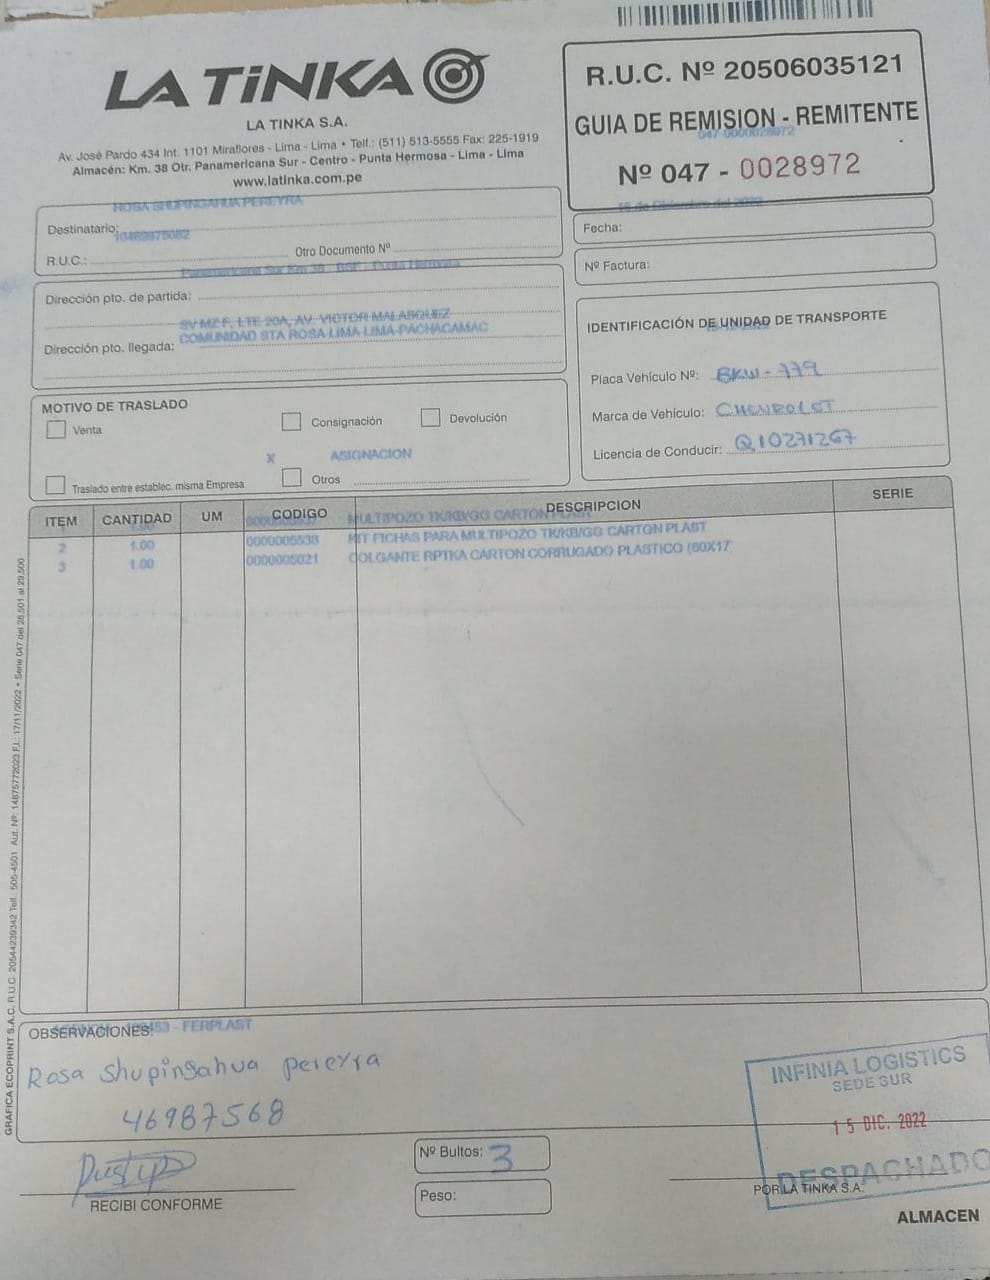 LA TiNKA
LA TINKA S.A.
Av. José Pardo 434 Int. 1101 Miraflores - Lima - Lima • Telf.: (511) 513-5555 Fax: 225-1919
Almacén: Km. 38 Otr. Panamericana Sur - Centro - Punta Hermosa - Lima - Lima
www.latinka.com.pe
R.U.C. Nº 20506035121
GUIA DE REMISION - REMITENTE
047-0000028972
Nº 047 - 0028972
ROSA SHUPINGAHUA PEREYRA
Destinatario:
R.U.C.:
Otro Documento Nº
15 de Diciembre del 2022
Fecha:
Nº Factura:
Dirección pto. de partida:
SV MZ F, LTE 20A, AV. VICTOR MALASQUEZ
COMUNIDAD STA ROSA LIMA-LIMA-PACHACAMAC
Dirección pto. llegada:
IDENTIFICACIÓN DE UNIDAD DE TRANSPORTE
Placa Vehículo Nº: BKW-779
Marca de Vehículo: CHEVROLET
Licencia de Conducir: Q10271267
MOTIVO DE TRASLADO
Venta
Consignación
Devolución
X ASIGNACION
Traslado entre establec. misma Empresa
Otros
ITEM CANTIDAD UM CODIGO DESCRIPCION SERIE
1 1.00 MULTIPOZO TK/KB/GG CARTON PLAST
2 1.00 0000005538 KIT FICHAS PARA MULTIPOZO TK/KB/GG CARTON PLAST
3 1.00 0000005021 COLGANTE RPTKA CARTON CORRUGADO PLASTICO (60X17
GRAFICA ECOPRINT S.A.C. R.U.C. 20544239342 Telf.: 505-4501 Aut. Nº: 14875772023 F.I.: 17/11/2022 • Serie 047 del 28,501 al 29,500
OBSERVACIONES:
- FERPLAST
Rosa Shupingahua Pereyra
46987568
RECIBI CONFORME
Nº Bultos: 3
Peso:
INFINIA LOGISTICS
SEDE SUR
15 DIC. 2022
DESPACHADO
POR LA TINKA S.A.
ALMACEN